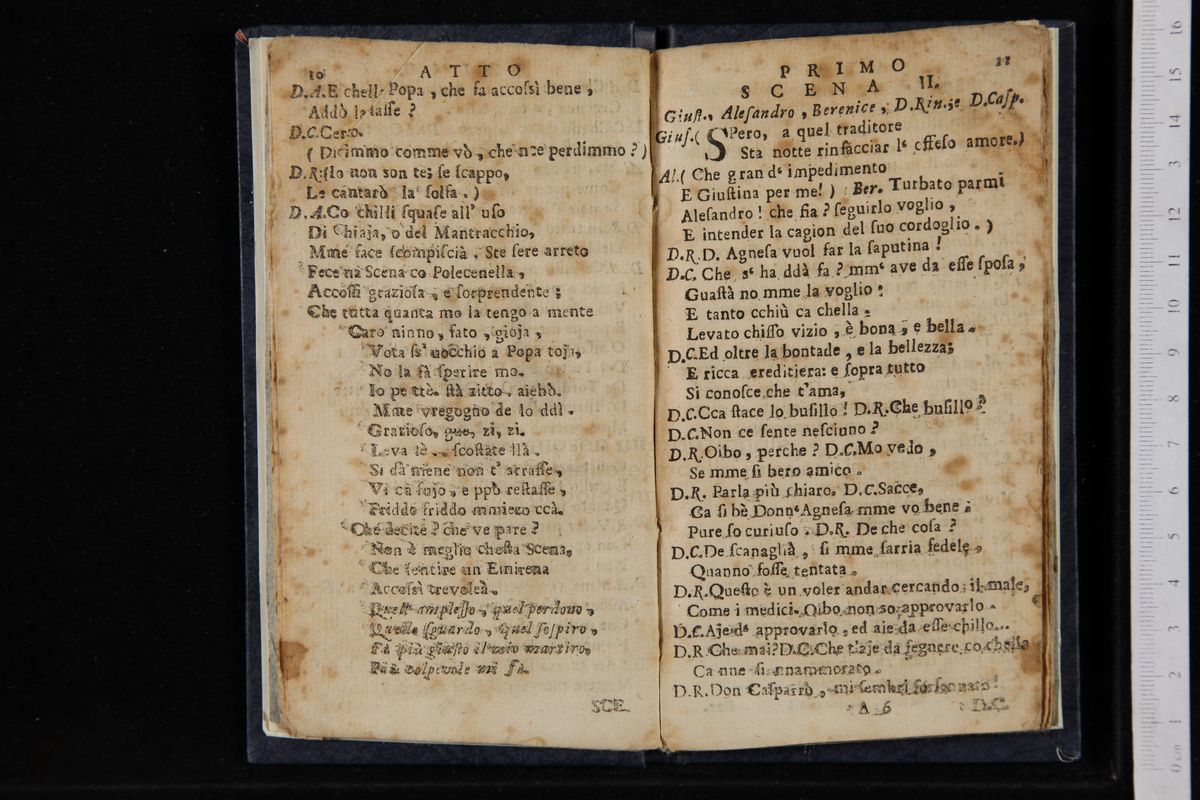 10 ATTO
D.A.E chella Popa, che fa accossì bene,
Addò la lasse?
D.C.Cerzo.
( Dicimmo comme vò, che nce perdimmo? )
D.R.(Io non son te; se scappo,
Le cantarò la solfa. )
D.A.Co chilli squase all' uso
Di Chiaja, o del Mantracchio,
Mme face scompiscià. Ste sere arreto
Fece na Scena co Polecenella,
Accossì graziosa, e sorprendente;
Che tutta quanta mo la tengo a mente
Caro ninno, fato, gioja,
Vota ss' uocchio a Popa toja,
No la fà sperire mo.
Io pe ttè. stà zitto. aiebò.
Mme vregogno de lo ddì.
Grazioso, gue, zi, zi.
Leva lè.. scostate llà.
Si dà mene non t' arrasse,
Vi ca sojo, e ppò restasse,
Friddo friddo mmiezo ccà.
Che decite? che ve pare?
Non è meglio chesta Scena,
Che sentire un Emirena
Accossì trevoleà.
Quell' amplesso, quel perdono,
Quello sguardo, quel sospiro,
Fà più giusto il mio martiro,
Più colpevole mi fà.
SCE.
PRIMO 11
SCENA II.
Giust., Alesandro, Berenice, D.Rin., e D.Casp.
Gius.( SPero, a quel traditore
Sta notte rinfacciar l' offeso amore.)
Al.( Che grand' impedimento
E Giustina per me! ) Ber. Turbato parmi
Alesandro! che fia? seguirlo voglio,
E intender la cagion del suo cordoglio. )
D.R.D. Agnesa vuol far la saputina!
D.C. Che s' ha ddà fa? mm' ave da esse sposa,
Guastà no mme la voglio:
E tanto cchiù ca chella.
Levato chisso vizio, è bona, e bella.
D.C.Ed oltre la bontade, e la bellezza;
E ricca ereditiera: e sopra tutto
Si conosce che t'ama,
D.C.Cca stace lo busillo! D.R.Che busillo?
D.C.Non ce sente nesciuno?
D.R.Oibo, perche? D.C.Mo vedo,
Se mme si bero amico.
D.R. Parla più chiaro. D.C.Sacce,
Ca si bè Donn'Agnesa mme vo bene;
Pure so curiuso. D.R. De che cosa?
D.C.De scanaglià, si mme sarria fedele,
Quanno fosse tentata.
D.R.Questo è un voler andar cercando il male,
Come i medici. Oibo non so approvarlo.
D.C.Aje d' approvarlo, ed aie da esse chillo...
D.R.Che mai? D.C.Che t'aje da fegnere co chella
Ca nne si nnammorato.
D.R.Don Casparrò, mi sembri forsennato!
A 6 D.C.